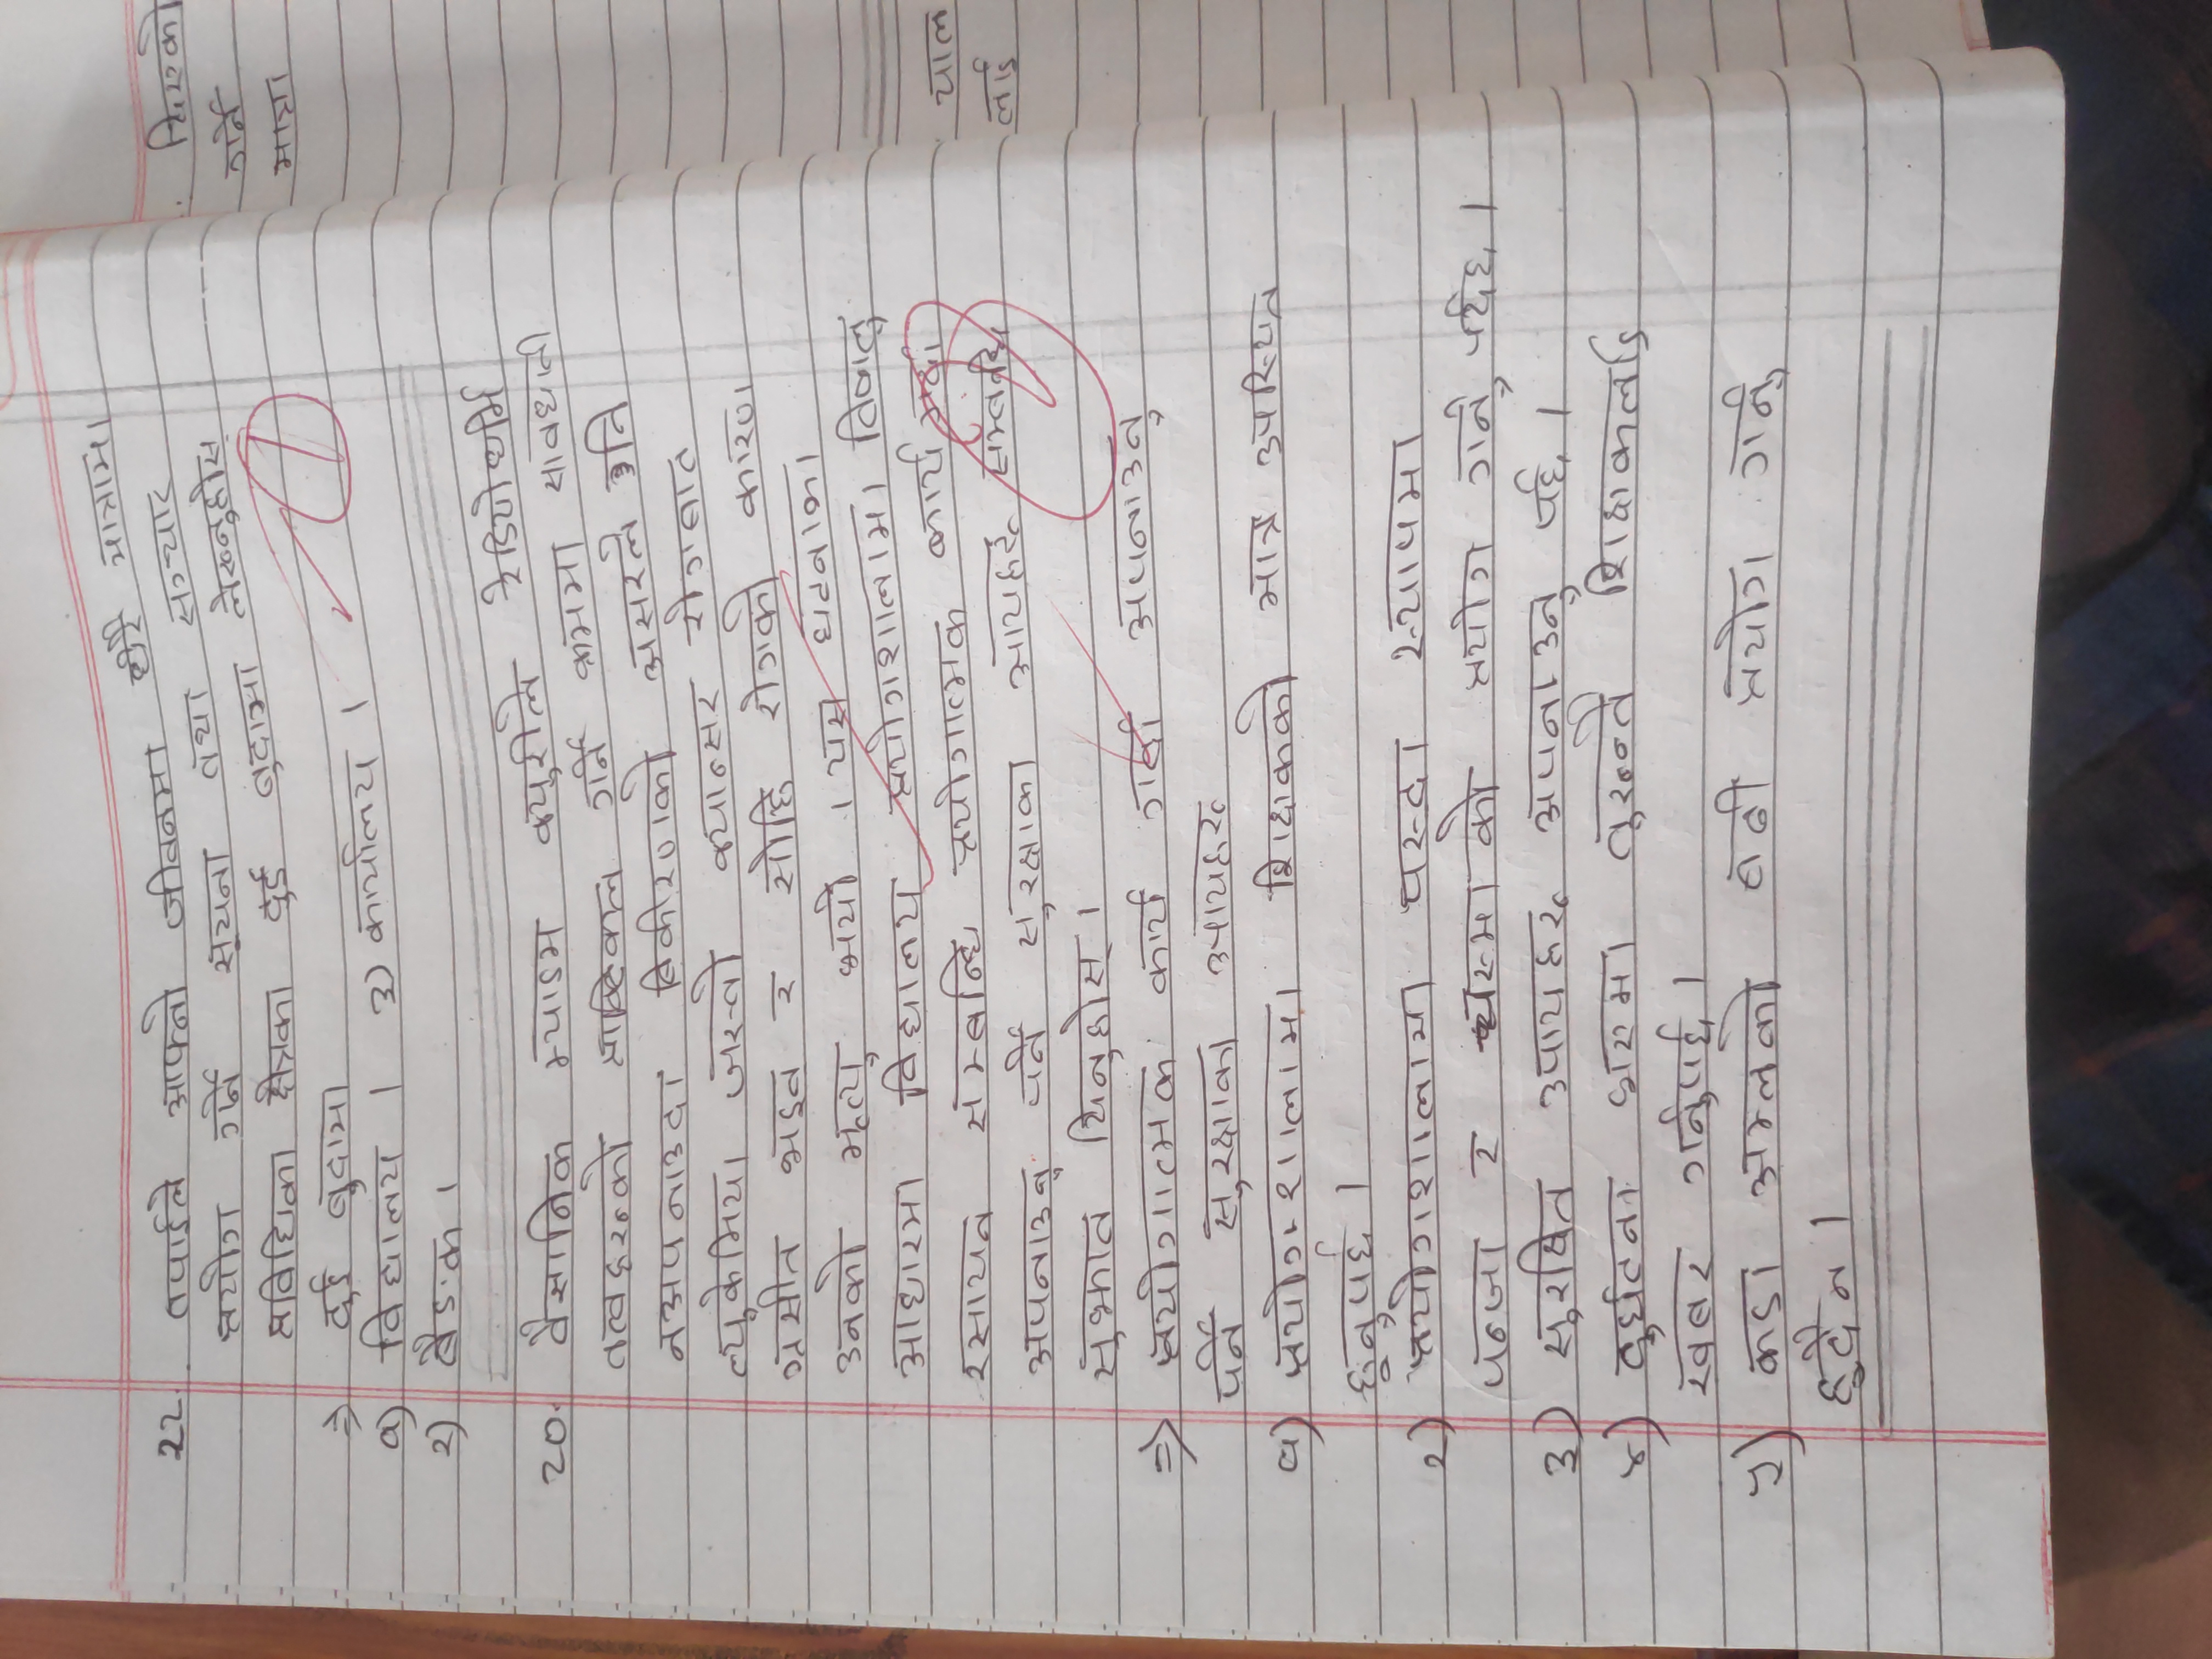 22. तपाईले आफ्नो जीवनमा धेरै मात्रामा
प्रयोग गर्ने सूचना तथा सञ्चार
प्रविधिका क्षेत्रका दुई बुदामा लेख्नुहोस्
⇒ दुई बुदामा
१) विद्यालय । ३) कार्यालय ।
२) बैङक ।
20. वैज्ञानिक म्याडम क्युरीले रेडियोधर्मि
तत्वहरुको गर्ने क्रममा सावधानी
नअपनाउदा विकीरणको असरले उनि
ल्युकेमिया जस्तो क्यान्सर रोगबात
ग्रसीत भइन र सोहि रोगको कारण
उनको मृत्यु भयो । यस घटनाका
आधारमा विद्यालय प्रयोगशालामा
रसायन सम्बन्धि प्रयोगात्मक कार्य गर्दा
अपनाउनु पर्ने सुरक्षाका आयहरु सम्बन्धि
सुझात दिनुहोस् ।
⇒ प्रयोगात्मक कार्य गर्दा अपनाउनु
पर्ने सुरक्षाका उपायहरु
१) प्रयोगशालामा शिक्षकको मात्र उपस्थित
हुनुपर्छ ।
२) प्रयोगशालामा पस्दा
पन्जा र चस्माको प्रयोग गर्नु पर्दछ ।
३) सुरक्षित उपायहरु अपनाउनु पर्छ ।
४) दुर्घटना भएमा तुरुन्तै शिक्षकलाई
खबर गर्नुपर्छ ।
५) कडा अम्लको बढी प्रयोग गर्नु
हुदैन ।
दिएको
गर्ने
मात्रा
चाल
लाई